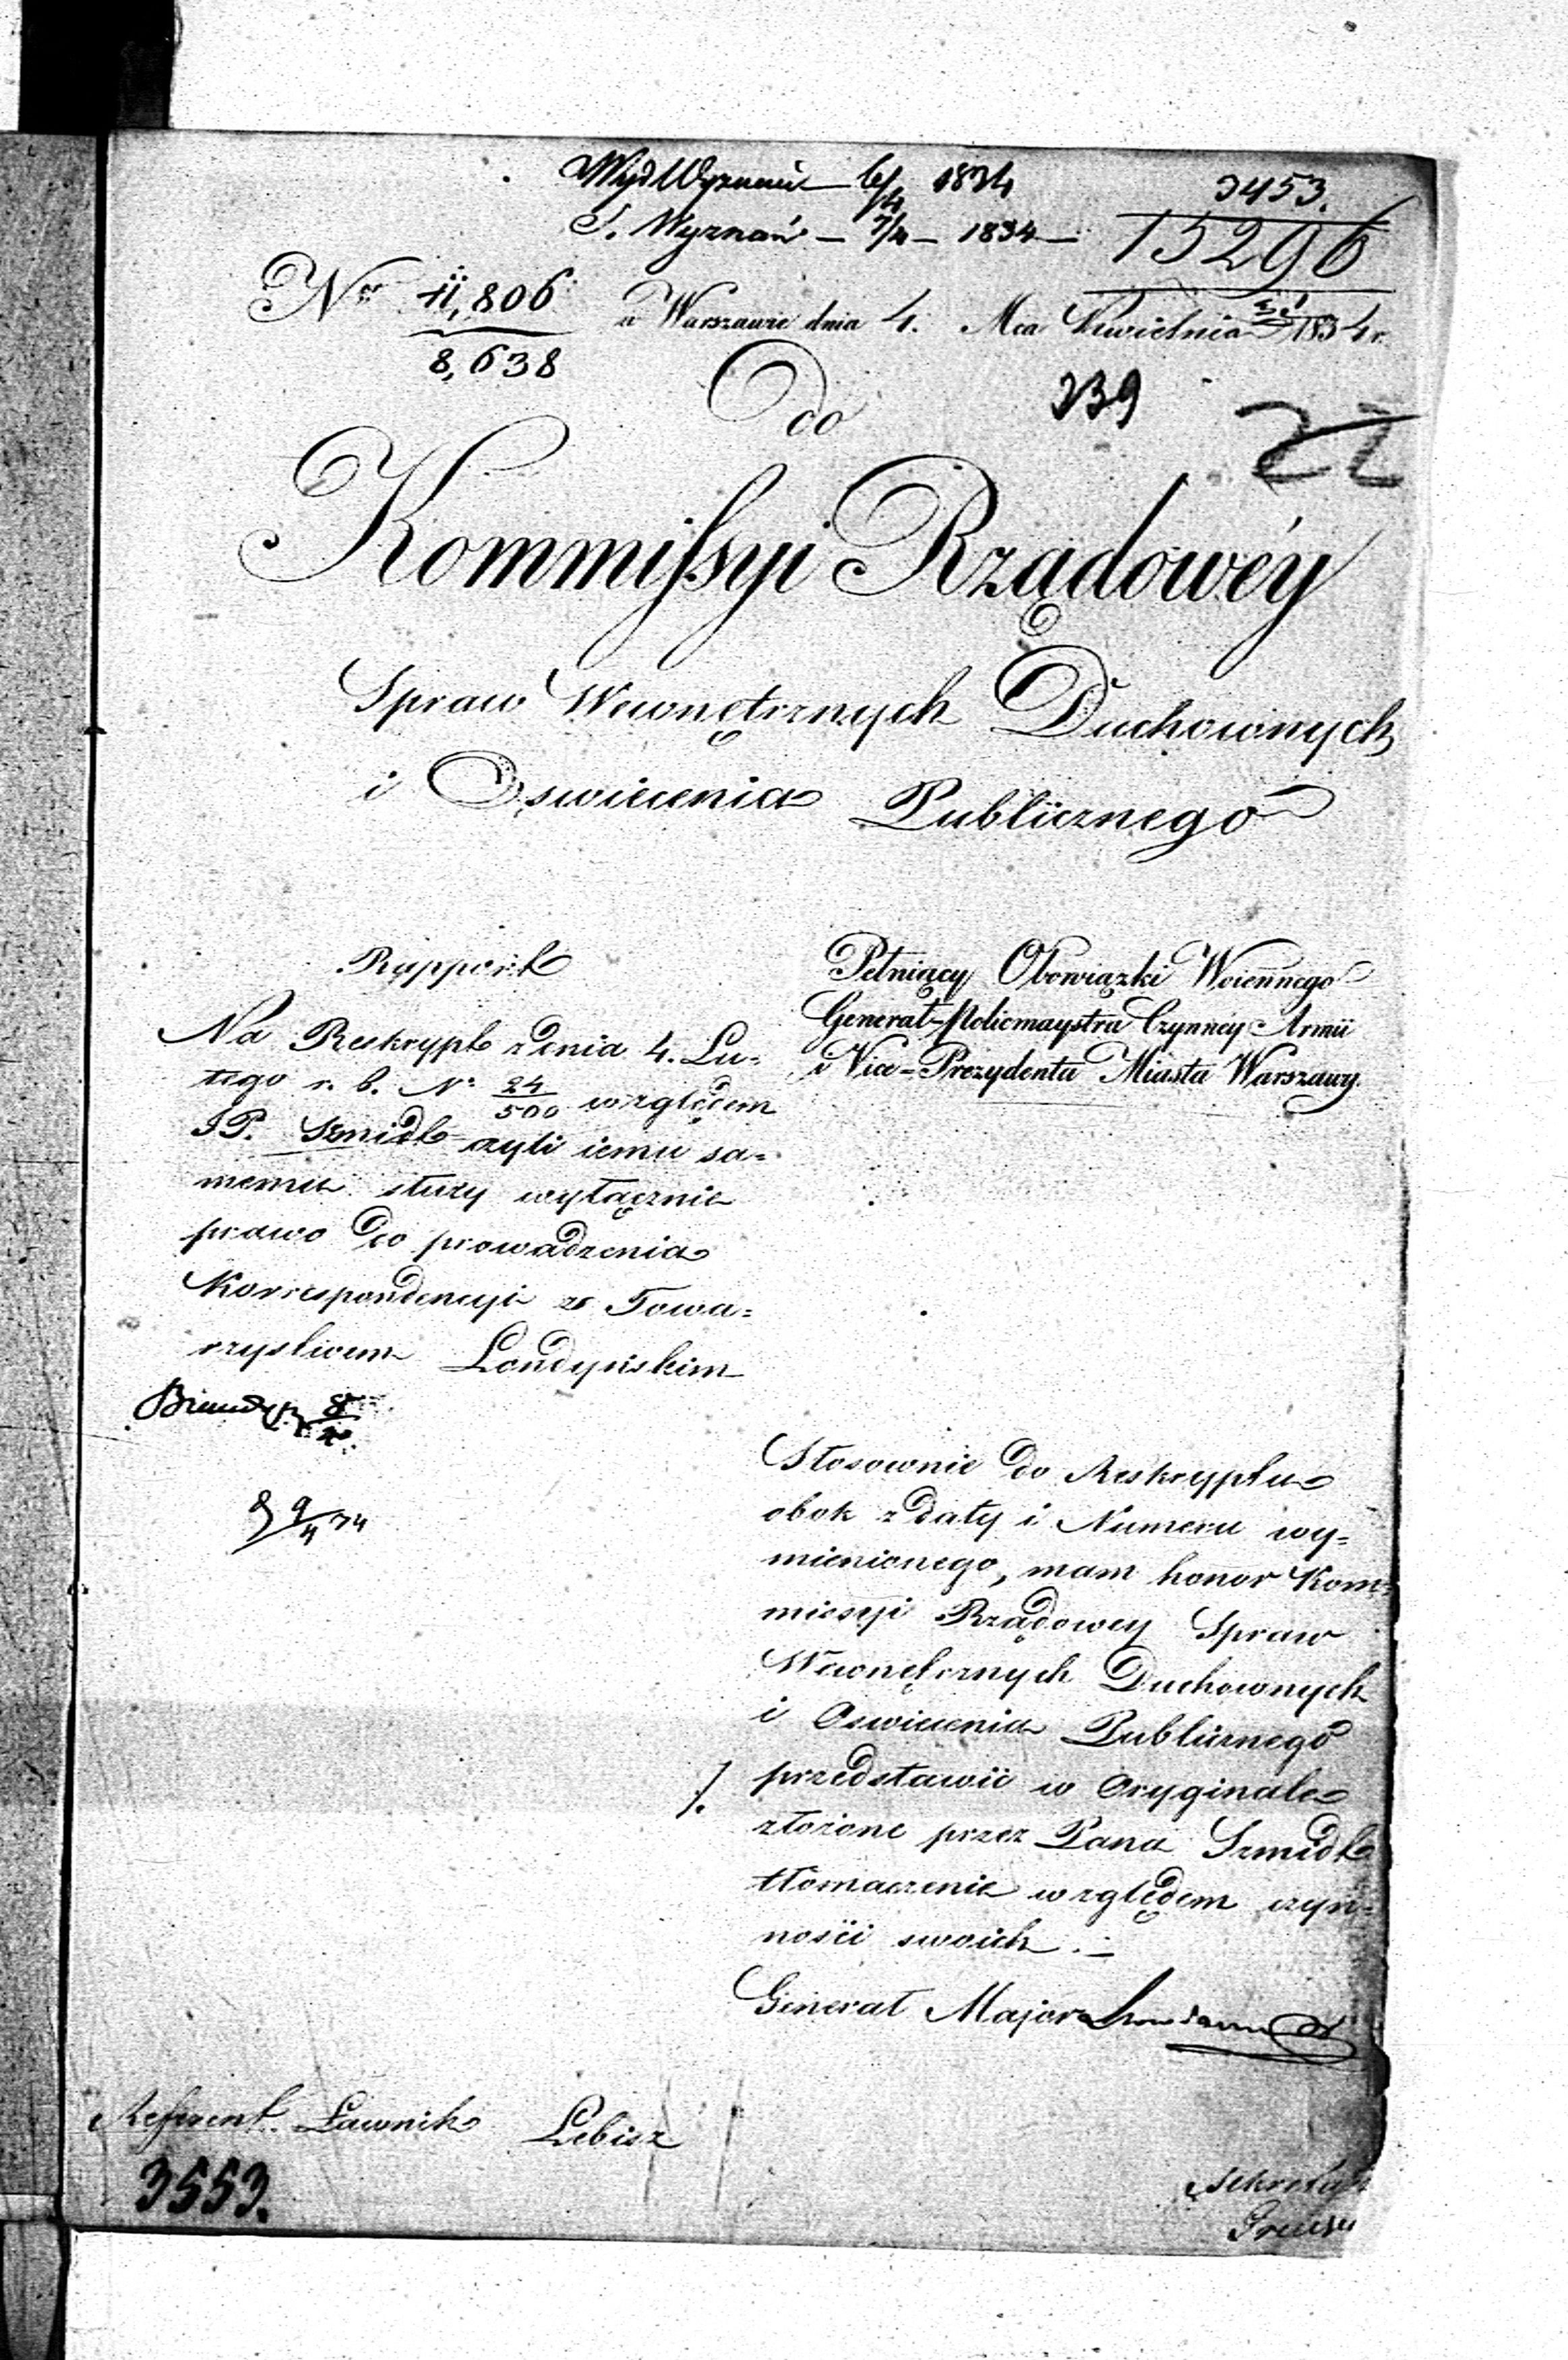 Wyd Wyznań 6/4 1834
S. Wyznań — 7/4 — 1834 —
3453.
15296
Nro 11,806
8,638
w Warszawie dnia 4. Mca Kwietnia 1834 r.
Do
239
22
Kommissyi Rządowéy
Spraw Wewnętrznych Duchownych
i Oswiecenia Publicznego
Rapport
Na Reskrypt z dnia 4. Lu=
tego r. b. No 24/500 względem
JP. Szmidt czyli iemu sa=
memu służy wyłącznie
prawo do prowadzenia
Korrespondencyi z Towa=
rzystwem Londyńskim
8/4
9/4 34
Pełniący Obowiązki Woiennego
Generał-Policmaystra Czynnéy Armii
i Vice-Prezydenta Miasta Warszawy.
Stosownie do Reskryptu
obok z daty i Numeru wy=
mienionego, mam honor Kom=
missyi Rządowey Spraw
Wewnętrznych Duchownych
i Oswiecenia Publicznego
przedstawić w Oryginale
złożone przez Pana Szmidt
tłomaczenie względem czyn=
ności swoich. —
Generał Major
Referent Ławnik Lebisz
3553.
Sekretarz